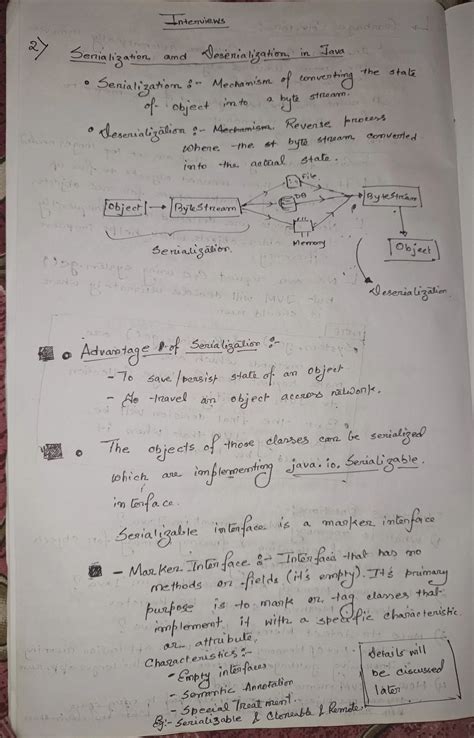 Interviews
2) Serialization and Deserialization in Java
• Serialization :- Mechanism of converting the state
of object into a byte stream.
• Deserialization :- Mechanism. Reverse process
where the st byte stream converted
into the actual state.
Object
ByteStream
File
DB
Memory
ByteStream
Object
Serialization
Deserialization
• Advantage of Serialization :-
- To save/persist state of an object
- To travel an object across network.
• The objects of those classes can be serialized
which are implementing java.io.Serializable.
interface.
Serializable interface is a marker interface
- Marker Interface :- Interface that has no
methods or fields (it's empty). It's primary
purpose is to mark or tag classes that
implement it with a specific characteristic
or attribute.
Characteristics :-
- Empty interfaces
- Semantic Annotation
- Special Treatment.
Eg:- Serializable & Cloneable & Remote.
details will
be discussed
later